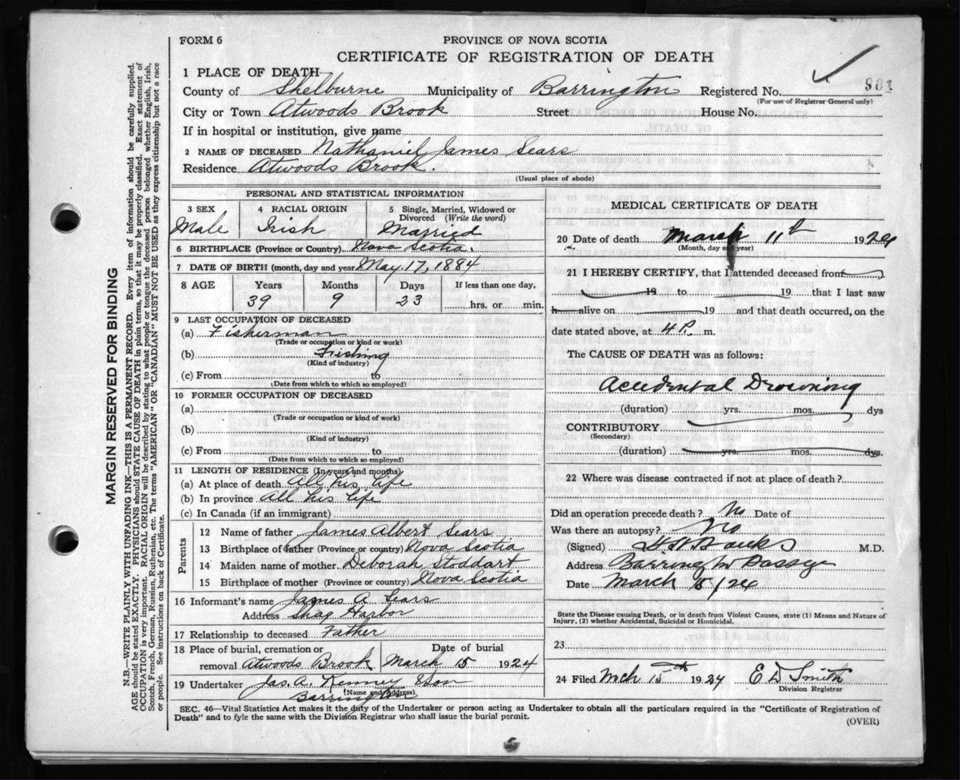 FORM 6
PROVINCE OF NOVA SCOTIA
CERTIFICATE OF REGISTRATION OF DEATH
1 PLACE OF DEATH
County of Shelburne Municipality of Barrington Registered No.
(For use of Registrar General only)
City or Town Atwoods Brook Street House No.
If in hospital or institution, give name
2 NAME OF DECEASED Nathaniel James Sears
Residence Atwoods Brook.
(Usual place of abode)
PERSONAL AND STATISTICAL INFORMATION
3 SEX 4 RACIAL ORIGIN 5 Single, Married, Widowed or Divorced (Write the word)
Male Irish Married
6 BIRTHPLACE (Province or Country) Nova Scotia.
7 DATE OF BIRTH (month, day and year) May 17, 1884
8 AGE Years Months Days If less than one day,
39 9 23 hrs. or min.
9 LAST OCCUPATION OF DECEASED
(a) Fisherman
(Trade or occupation or kind of work)
(b) Fishing
(Kind of industry)
(c) From to
(Date from which to which so employed)
10 FORMER OCCUPATION OF DECEASED
(a)
(Trade or occupation or kind of work)
(b)
(Kind of industry)
(c) From to
(Date from which to which so employed)
11 LENGTH OF RESIDENCE (In years and months)
(a) At place of death All his life
(b) In province All his life
(c) In Canada (if an immigrant)
Parents
12 Name of father James Albert Sears
13 Birthplace of father (Province or country) Nova Scotia
14 Maiden name of mother Deborah Stoddart
15 Birthplace of mother (Province or country) Nova Scotia
16 Informant's name James A Sears
Address Shag Harbor
17 Relationship to deceased Father
18 Place of burial, cremation or removal Atwoods Brook Date of burial March 15 1924
19 Undertaker Jas. A. Kenney & Son
(Name and Address)
MEDICAL CERTIFICATE OF DEATH
20 Date of death March 11th 1924
(Month, day and year)
21 I HEREBY CERTIFY, that I attended deceased from
19 to 19 that I last saw
h alive on 19 and that death occurred, on the
date stated above, at 4 P. m.
The CAUSE OF DEATH was as follows:
Accidental Drowning
(duration) yrs. mos. dys
CONTRIBUTORY
(Secondary)
(duration) yrs. mos. dys.
22 Where was disease contracted if not at place of death?
Did an operation precede death? No Date of
Was there an autopsy? No
(Signed) Banks M.D.
Address Barrington Passage
Date March 15/24
State the Disease causing Death, or in death from Violent Causes, state (1) Means and Nature of Injury, (2) whether Accidental, Suicidal or Homicidal.
23
24 Filed Mch 15th 1924 E D Smith
Division Registrar
SEC. 46—Vital Statistics Act makes it the duty of the Undertaker or person acting as Undertaker to obtain all the particulars required in the "Certificate of Registration of
Death" and to fyle the same with the Division Registrar who shall issue the burial permit.
(OVER)
MARGIN RESERVED FOR BINDING
N.B.—WRITE PLAINLY WITH UNFADING INK—THIS IS A PERMANENT RECORD. Every item of information should be carefully supplied.
AGE should be stated EXACTLY. PHYSICIANS should STATE CAUSE OF DEATH in plain terms, so that it may be properly classified. Exact statement of
OCCUPATION is very important. RACIAL ORIGIN will be described by stating to what people or tongue the deceased person belonged whether English, Irish,
Scotch, French, German, Russian, Ruthenian, etc. The terms "AMERICAN" OR "CANADIAN" MUST NOT BE USED as they express citizenship but not a race
or people. See instructions on back of Certificate.